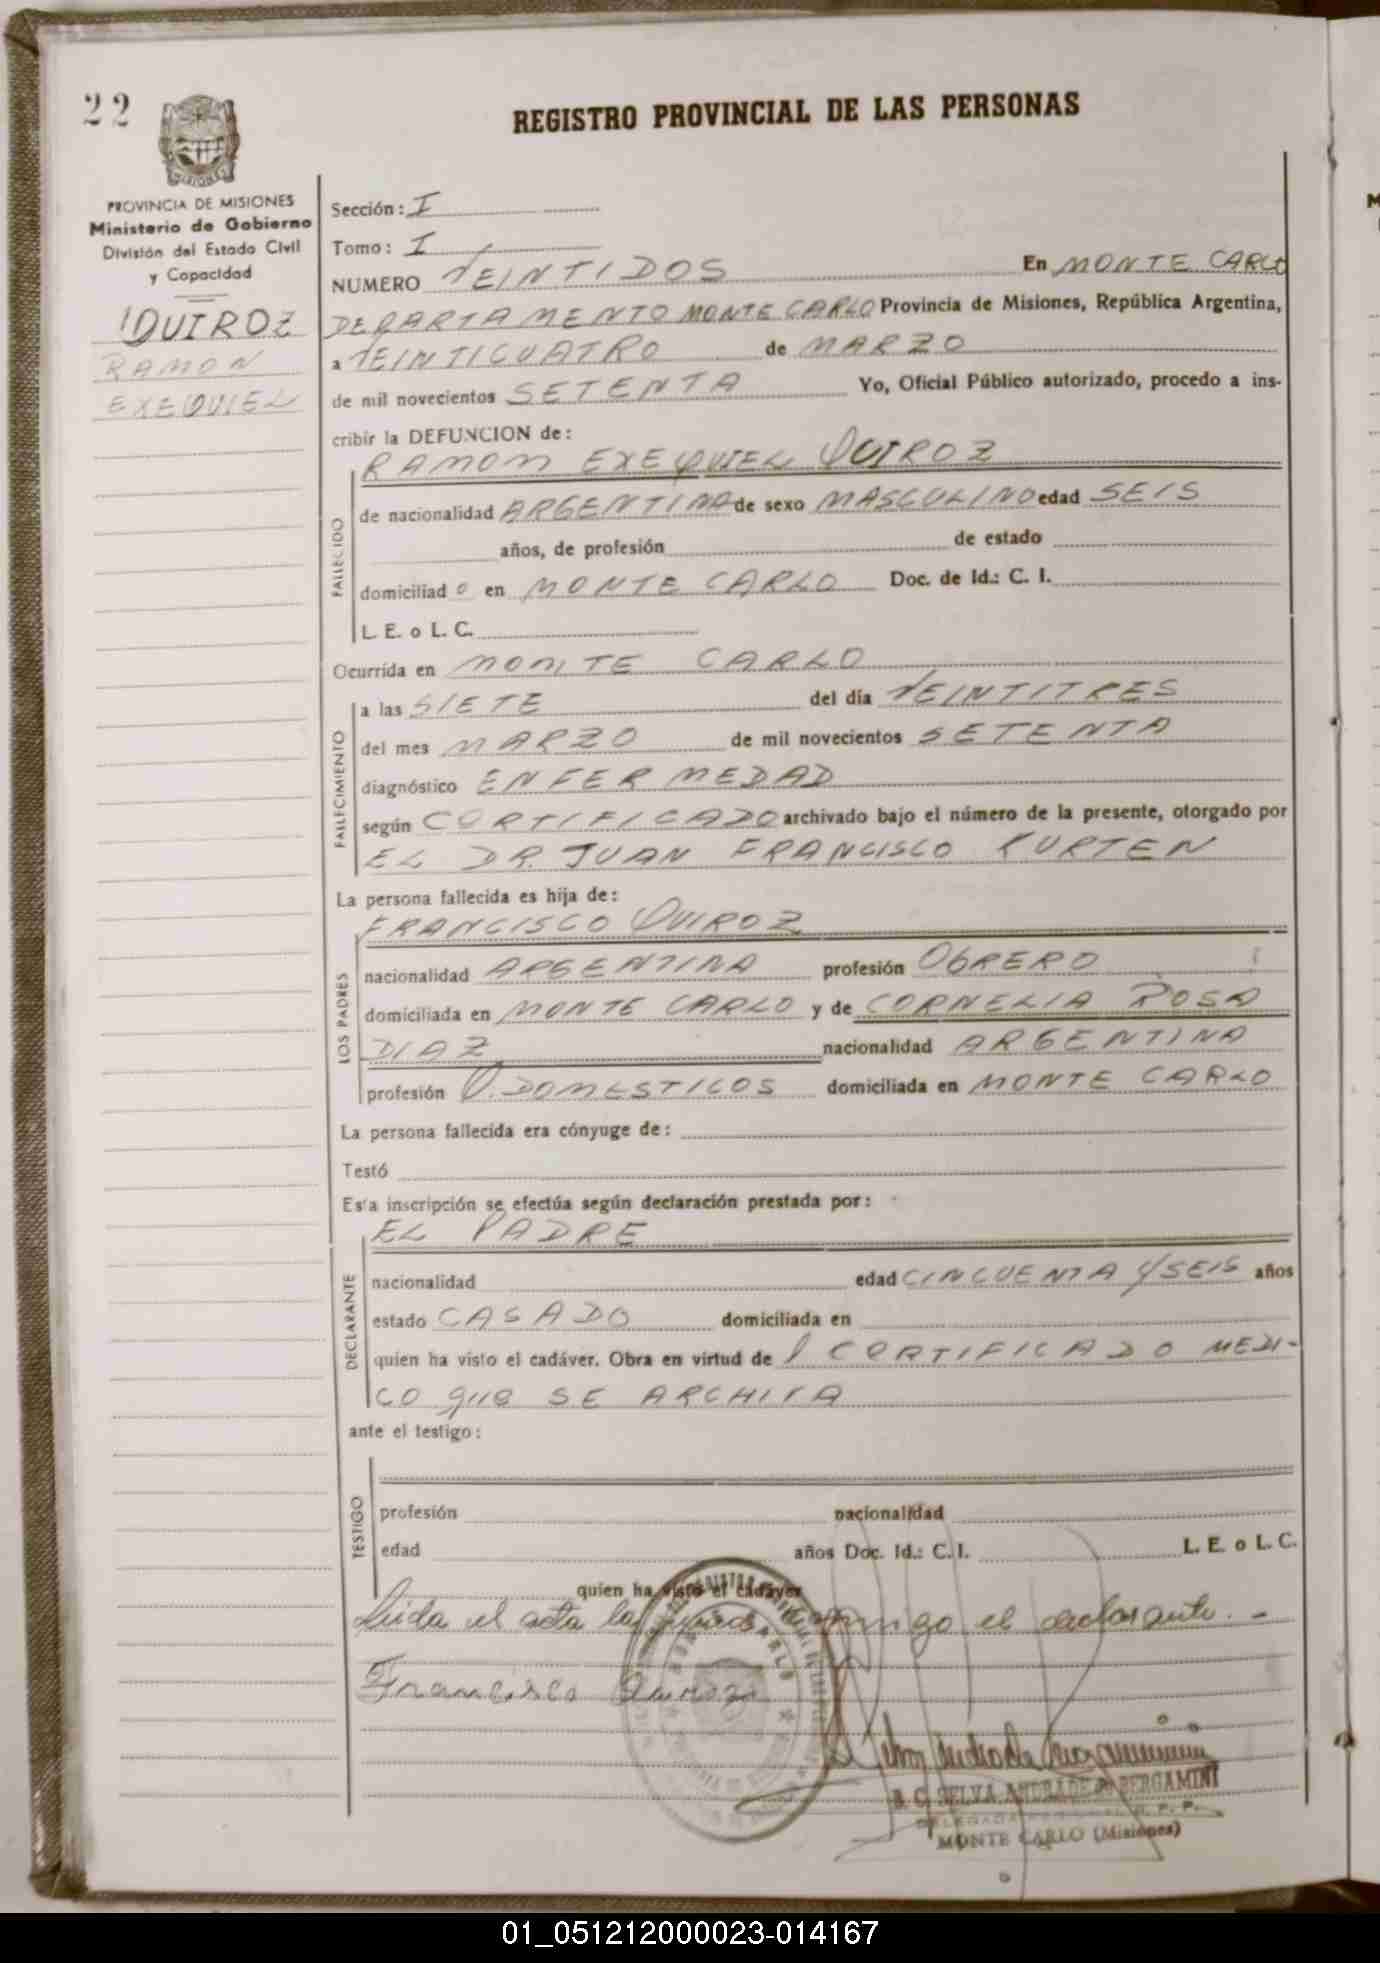 22
REGISTRO PROVINCIAL DE LAS PERSONAS
MISIONES
PROVINCIA DE MISIONES
Ministerio de Gobierno
División del Estado Civil
y Capacidad
QUIROZ
RAMON
EXEQUIEL
Sección: I
Tomo: I
NUMERO VEINTIDOS En MONTE CARLO
DEPARTAMENTO MONTE CARLO Provincia de Misiones, República Argentina,
a VEINTICUATRO de MARZO
de mil novecientos SETENTA Yo, Oficial Público autorizado, procedo a ins-
cribir la DEFUNCION de:
RAMON EXEQUIEL QUIROZ
FALLECIDO
de nacionalidad ARGENTINA de sexo MASCULINO edad SEIS
años, de profesión de estado
domiciliad o en MONTE CARLO Doc. de Id.: C. I.
L. E. o L. C.
Ocurrida en MONTE CARLO
FALLECIMIENTO
a las SIETE del día VEINTITRES
del mes MARZO de mil novecientos SETENTA
diagnóstico ENFERMEDAD
según CERTIFICADO archivado bajo el número de la presente, otorgado por
EL DR. JUAN FRANCISCO KURTEN
La persona fallecida es hija de:
FRANCISCO QUIROZ
LOS PADRES
nacionalidad ARGENTINA profesión OBRERO
domiciliada en MONTE CARLO y de CORNELIA ROSA
DIAZ nacionalidad ARGENTINA
profesión Q. DOMESTICOS domiciliada en MONTE CARLO
La persona fallecida era cónyuge de:
Testó
Esta inscripción se efectúa según declaración prestada por:
EL PADRE
DECLARANTE
nacionalidad edad CINCUENTA Y SEIS años
estado CASADO domiciliada en
quien ha visto el cadáver. Obra en virtud de l CERTIFICADO MEDI-
CO que SE ARCHIVA
ante el testigo:
TESTIGO
profesión nacionalidad
edad años Doc. Id.: C. I. L. E. o L. C.
quien ha visto el cadáver
Leida el acta la conmigo el declarante. -
Francisco Quiroz
SELVA ANDRADE de BERGAMINI
DELEGADA R. P. P.
MONTE CARLO (Misiones)
01_051212000023-014167